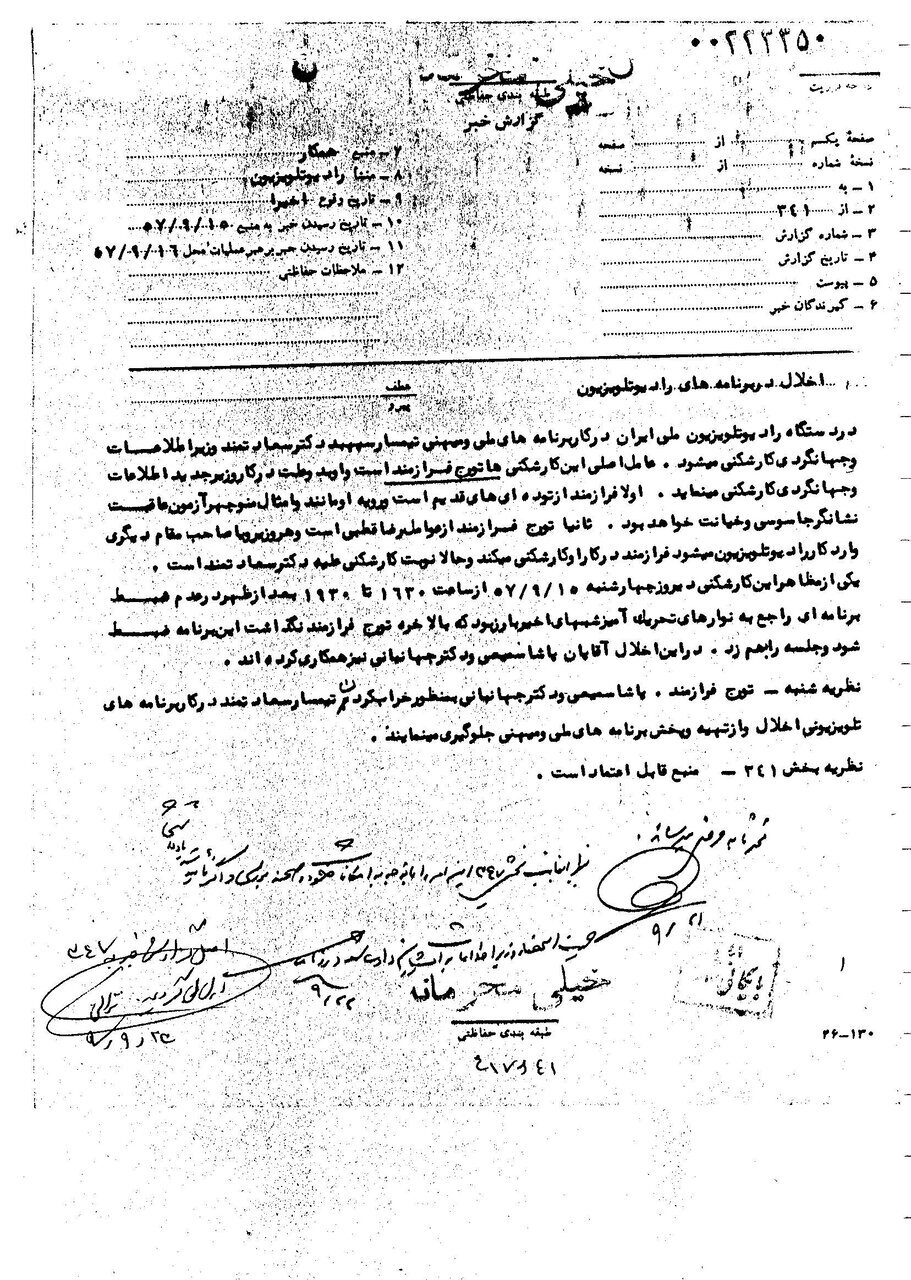 ۰۰۲۲۳۳۵۰
خیلی
طبقه بندی حفاظتی
گزارش خبر
درجه فوریت
صفحهٔ یکم از صفحه
نسخهٔ شماره از نسخه
۱ – به
۲ – از ۳۴۱
۳ – شماره گزارش
۴ – تاریخ گزارش
۵ – پیوست
۶ – گیرندگان خبر
۷ – منبع همکار
۸ – منشأ رادیوتلویزیون
۹ – تاریخ وقوع اخیرا
۱۰ – تاریخ رسیدن خبر به منبع ۵۷/۹/۱۵
۱۱ – تاریخ رسیدن خبر به رهبر عملیات محل ۵۷/۹/۱۶
۱۲ – ملاحظات حفاظتی
اخلال در برنامه های رادیوتلویزیون
عطف
پیرو
در دستگاه رادیوتلویزیون ملی ایران در کار برنامه های ملی و میهنی تیمسار سپهبد دکتر سعادتمند وزیر اطلاعات
و جهانگردی کارشکنی میشود . عامل اصلی این کارشکنی ها تورج فرازمند است و اوبد وعلت در کار وزیر جدید اطلاعات
و جهانگردی کارشکنی مینماید . اولا فرازمند از توده ای های قدیم است و رویه او مانند و امثال منوچهر آزمون عاقبت
نشانگر جاسوسی و خیانت خواهد بود . ثانیا تورج فرازمند از عوامل رضا قطبی است و هر وزیر و یا صاحب مقام دیگری
وارد کار رادیوتلویزیون میشود فرازمند در کار او کارشکنی میکند و حالا نوبت کارشکنی علیه دکتر سعادتمند است .
یکی از مظاهر این کارشکنی دیروز چهارشنبه ۵۷/۹/۱۵ از ساعت ۱۶۳۰ تا ۱۹۳۰ بعد از ظهر در عدم ضبط
برنامه ای راجع به نوارهای تحریک آمیز شبهای اخیر بارز بود که بالاخره تورج فرازمند نگذاشت این برنامه ضبط
شود و جلسه را بهم زد . در این اخلال آقایان پاشا سمیعی و دکتر جهانبانی نیز همکاری کرده اند .
نظریه شنبه – تورج فرازمند . پاشا سمیعی و دکتر جهانبانی بمنظور خراب کردن تیمسار سعادتمند در کار برنامه های
تلویزیونی اخلال و از تهیه و پخش برنامه های ملی و میهنی جلوگیری مینمایند .
نظریه بخش ۳۴۱ – منبع قابل اعتماد است .
۹/۲۱
۹/۲۲
۹/۲۳
بایگانی
۱
خیلی محرمانه
طبقه بندی حفاظتی
۲۶–۱۳۰